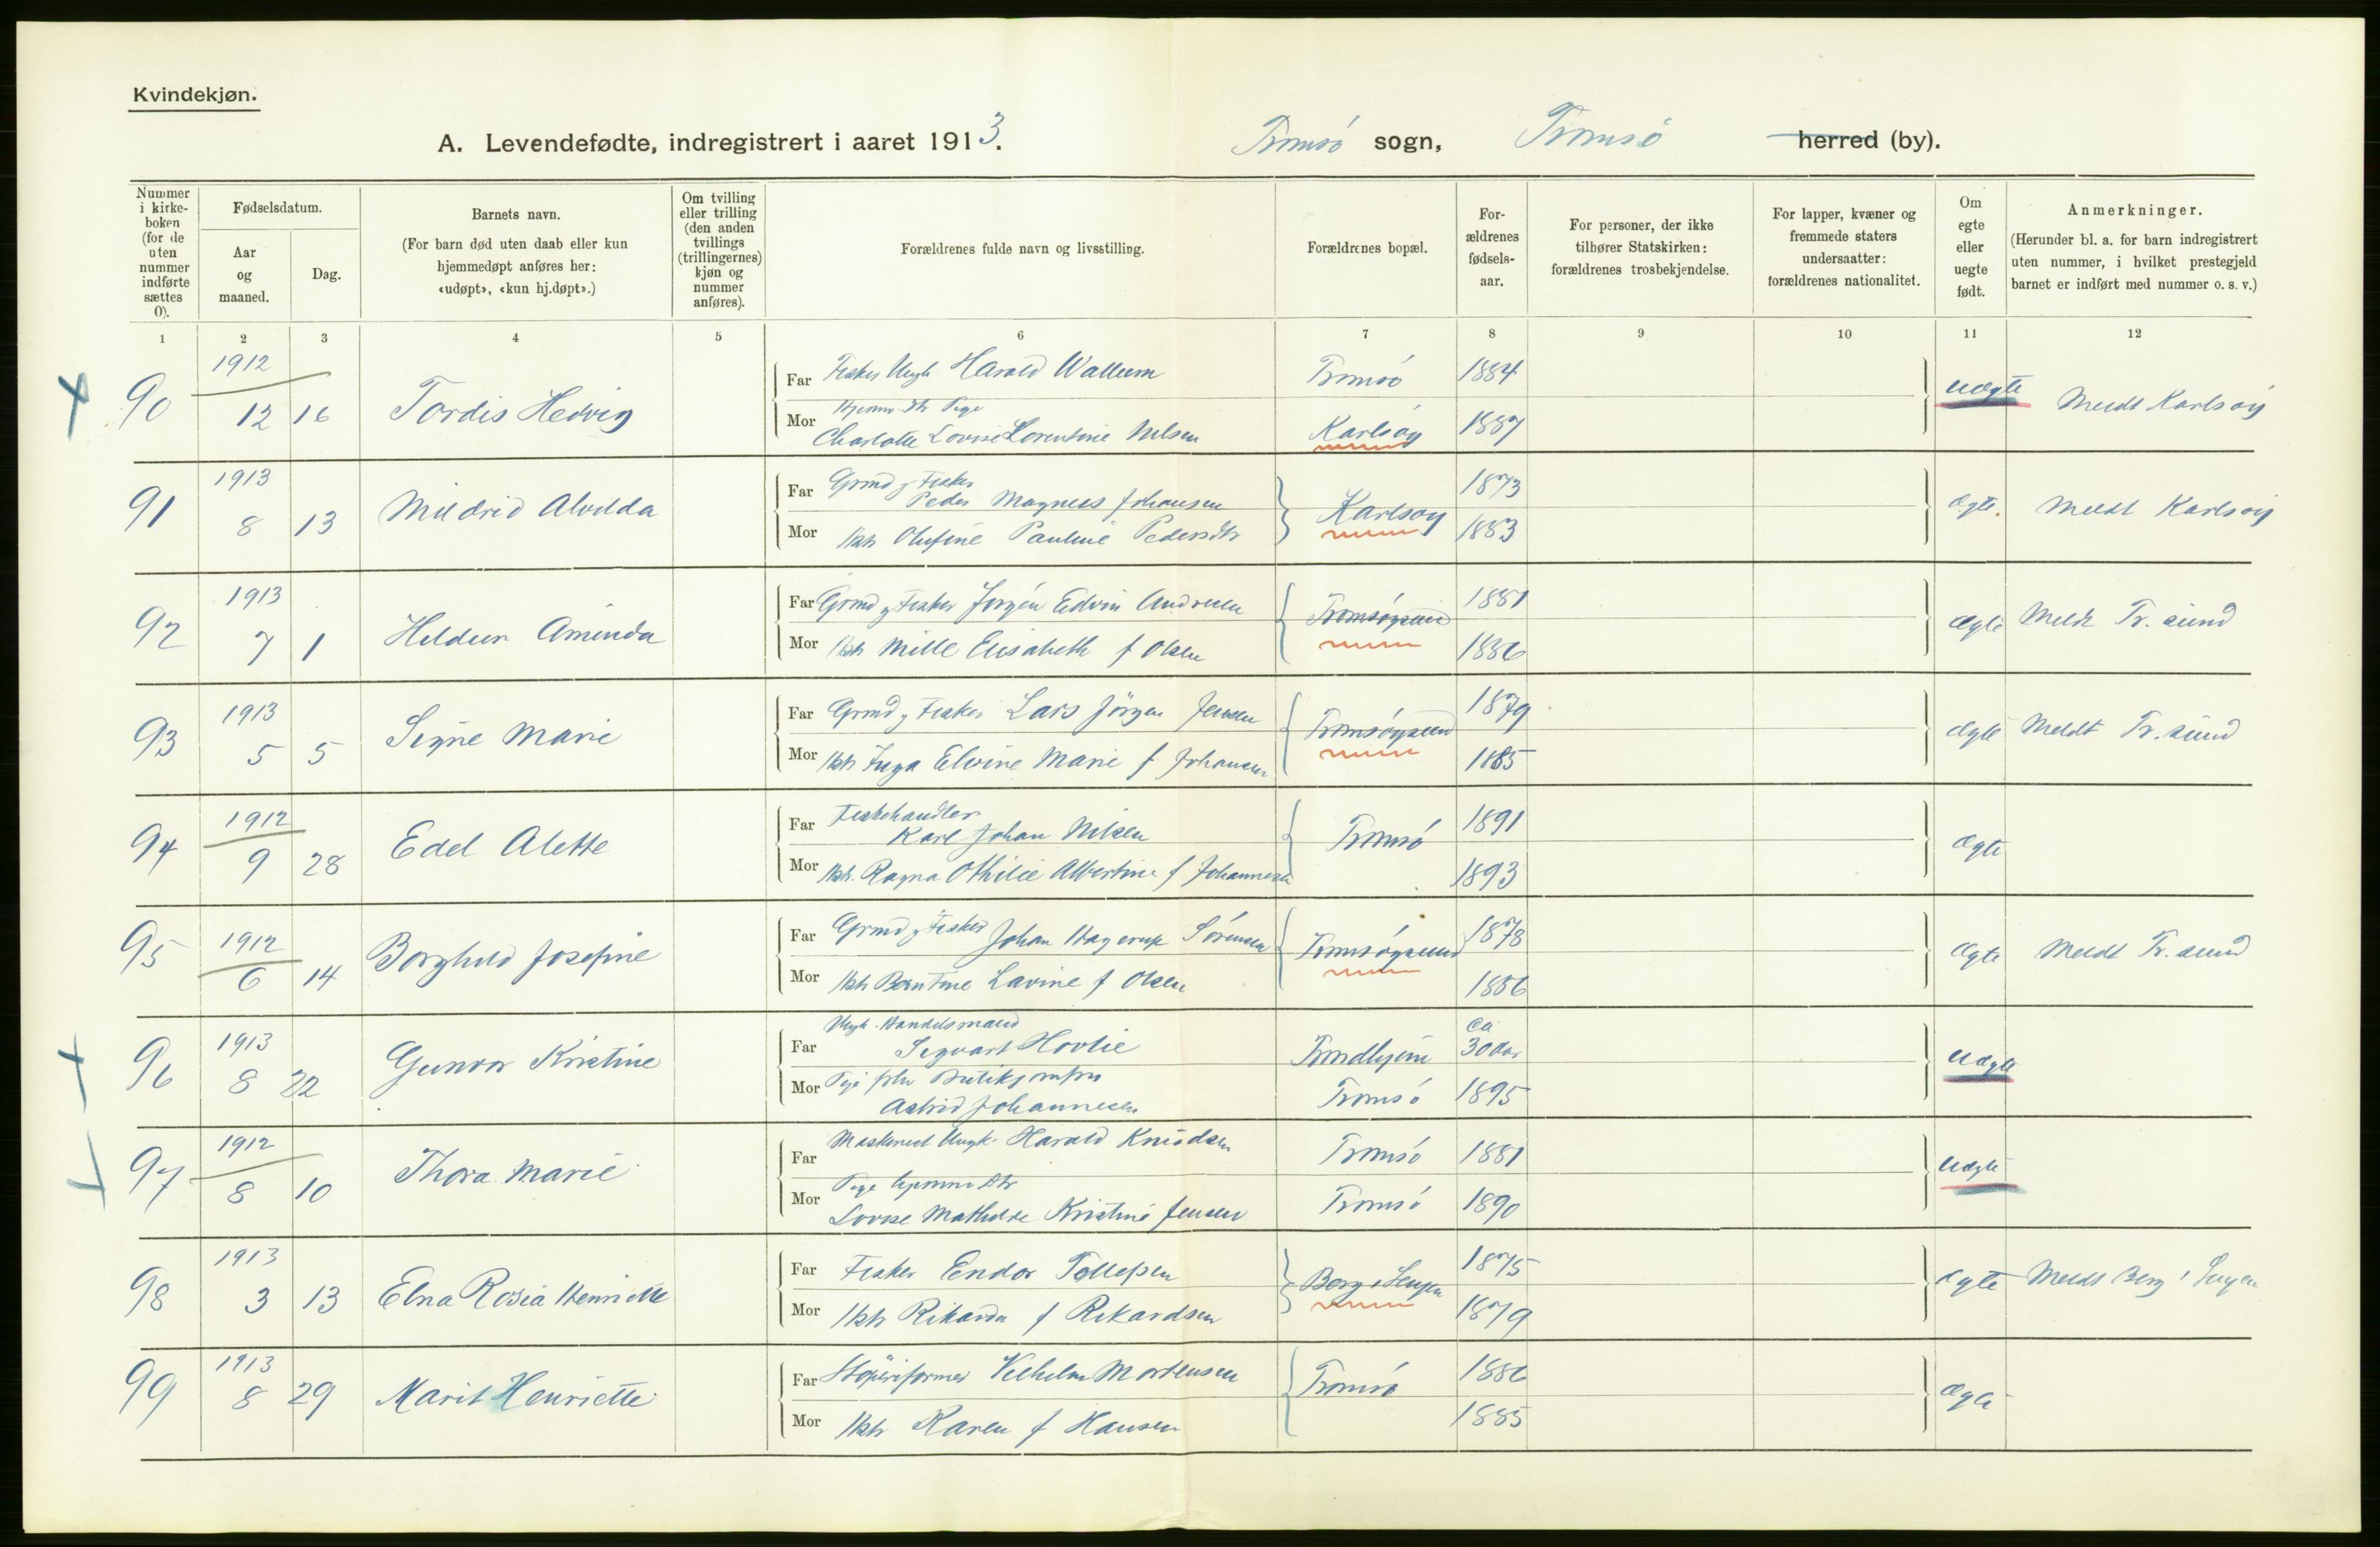 Kvindekjøn.
A. Levendefødte, indregistrert i aaret 1913. Tromsö sogn, Tromsö herred (by).
Nummer i kirkeboken (for de uten nummer indførte sættes 0).
Fødselsdatum.
Aar og maaned.
Dag.
Barnets navn.
(For barn død uten daab eller kun hjemmedøpt anføres her: «udøpt», «kun hj.døpt».)
Om tvilling eller trilling (den anden tvillings (trillingernes) kjøn og nummer anføres).
Forældrenes fulde navn og livsstilling.
Forældrenes bopæl.
Forældrenes fødselsaar.
For personer, der ikke tilhører Statskirken: forældrenes trosbekjendelse.
For lapper, kvæner og fremmede staters undersaatter: forældrenes nationalitet.
Om egte eller uegte født.
Anmerkninger.
(Herunder bl. a. for barn indregistrert uten nummer, i hvilket prestegjeld barnet er indført med nummer o. s. v.)
1 2 3 4 5 6 7 8 9 10 11 12
90 1912 12 16 Tordis Hedvig
Far Fisker Ungk Harald Wallum Tromsö 1884 uægte Meldt Karlsöy
Mor Hjemmev. Dtr Pige
Charlotte Lovise Lorentine Nilsen Karlsöy 1887
91 1913 8 13 Mildrid Alvilda
Far Grmd og Fisker
Peder Magnus Johansen Karlsöy 1873 ægte. Meldt Karlsöy
Mor Hstr Olufine Pauline Pedersdtr 1883
92 1913 7 1 Hildur Aminda
Far Grmd og Fisker Jörgen Edvin Andresen Tromsöysund 1881 ægte Meldt Tr. sund
Mor Hstr Mille Elisabeth f Olsen 1886
93 1913 5 5 Signe Marie
Far Grmd og Fisker Lars Jörgen Jensen Tromsöysund 1879 ægte Meldt Tr. sund
Mor Hstr Inga Elvine Marie f Johansen 1885
94 1912 9 28 Edel Alette
Far Fiskehandler
Karl Johan Nilsen Tromsö 1891 ægte
Mor Hstr. Ragna Othilie Albertine f Johannesen 1893
95 1912 6 14 Borghild Josefine
Far Grmd og Fisker Johan Hagerup Sörensen Tromsöysund 1878 ægte Meldt Tr. sund
Mor Hstr Berntine Lavine f Olsen 1886
96 1913 8 22 Gunvor Kristine
Far Ungk. Handelsmand
Sigvart Hovlie Trondhjem ca 30 aar uægte
Mor Pige Butiksjomfru
Astrid Johannesen Tromsö 1895
97 1912 8 10 Thora Marie
Far Maskinist Ungk. Harald Knudsen Tromsö 1881 uægte
Mor Pige hjemme Dtr
Lovise Mathilde Kristine Jensen Tromsö 1890
98 1913 3 13 Elna Rosia Henriette
Far Fisker Endor Tollefsen Berg i Senjen 1875 ægte Meldt Berg i Senjen
Mor Hstr Rikarda f Rikardsen 1879
99 1913 8 29 Marit Henriette
Far Stöperiformer Vilhelm Mortensen Tromsö 1886 ægte
Mor Hstr Karen f Hansen 1885